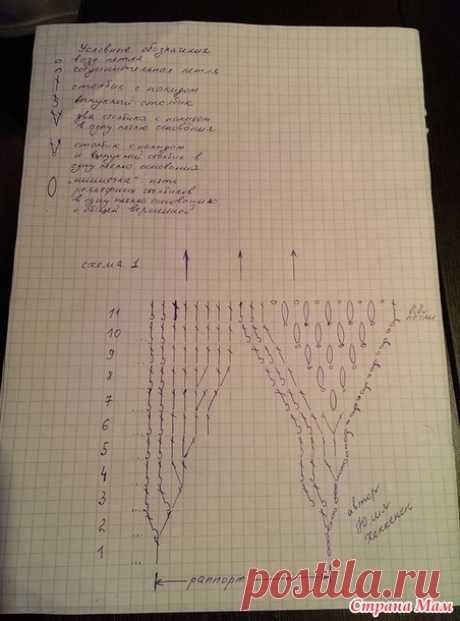 Условные обозначения
возд. петля
соединительная петля
столбик с накидом
выпуклый столбик
два столбика с накидом
в одну петлю основания
столбик с накидом
и выпуклый столбик в
одну петлю основания
"шишечка" - пять
рельефных столбиков
в одну петлю основания
с общей вершиной
схема 1
11
10
9
8
7
6
5
4
3
2
1
петли
автор
Юлия
раппорт
postila.ru
Страна Мам